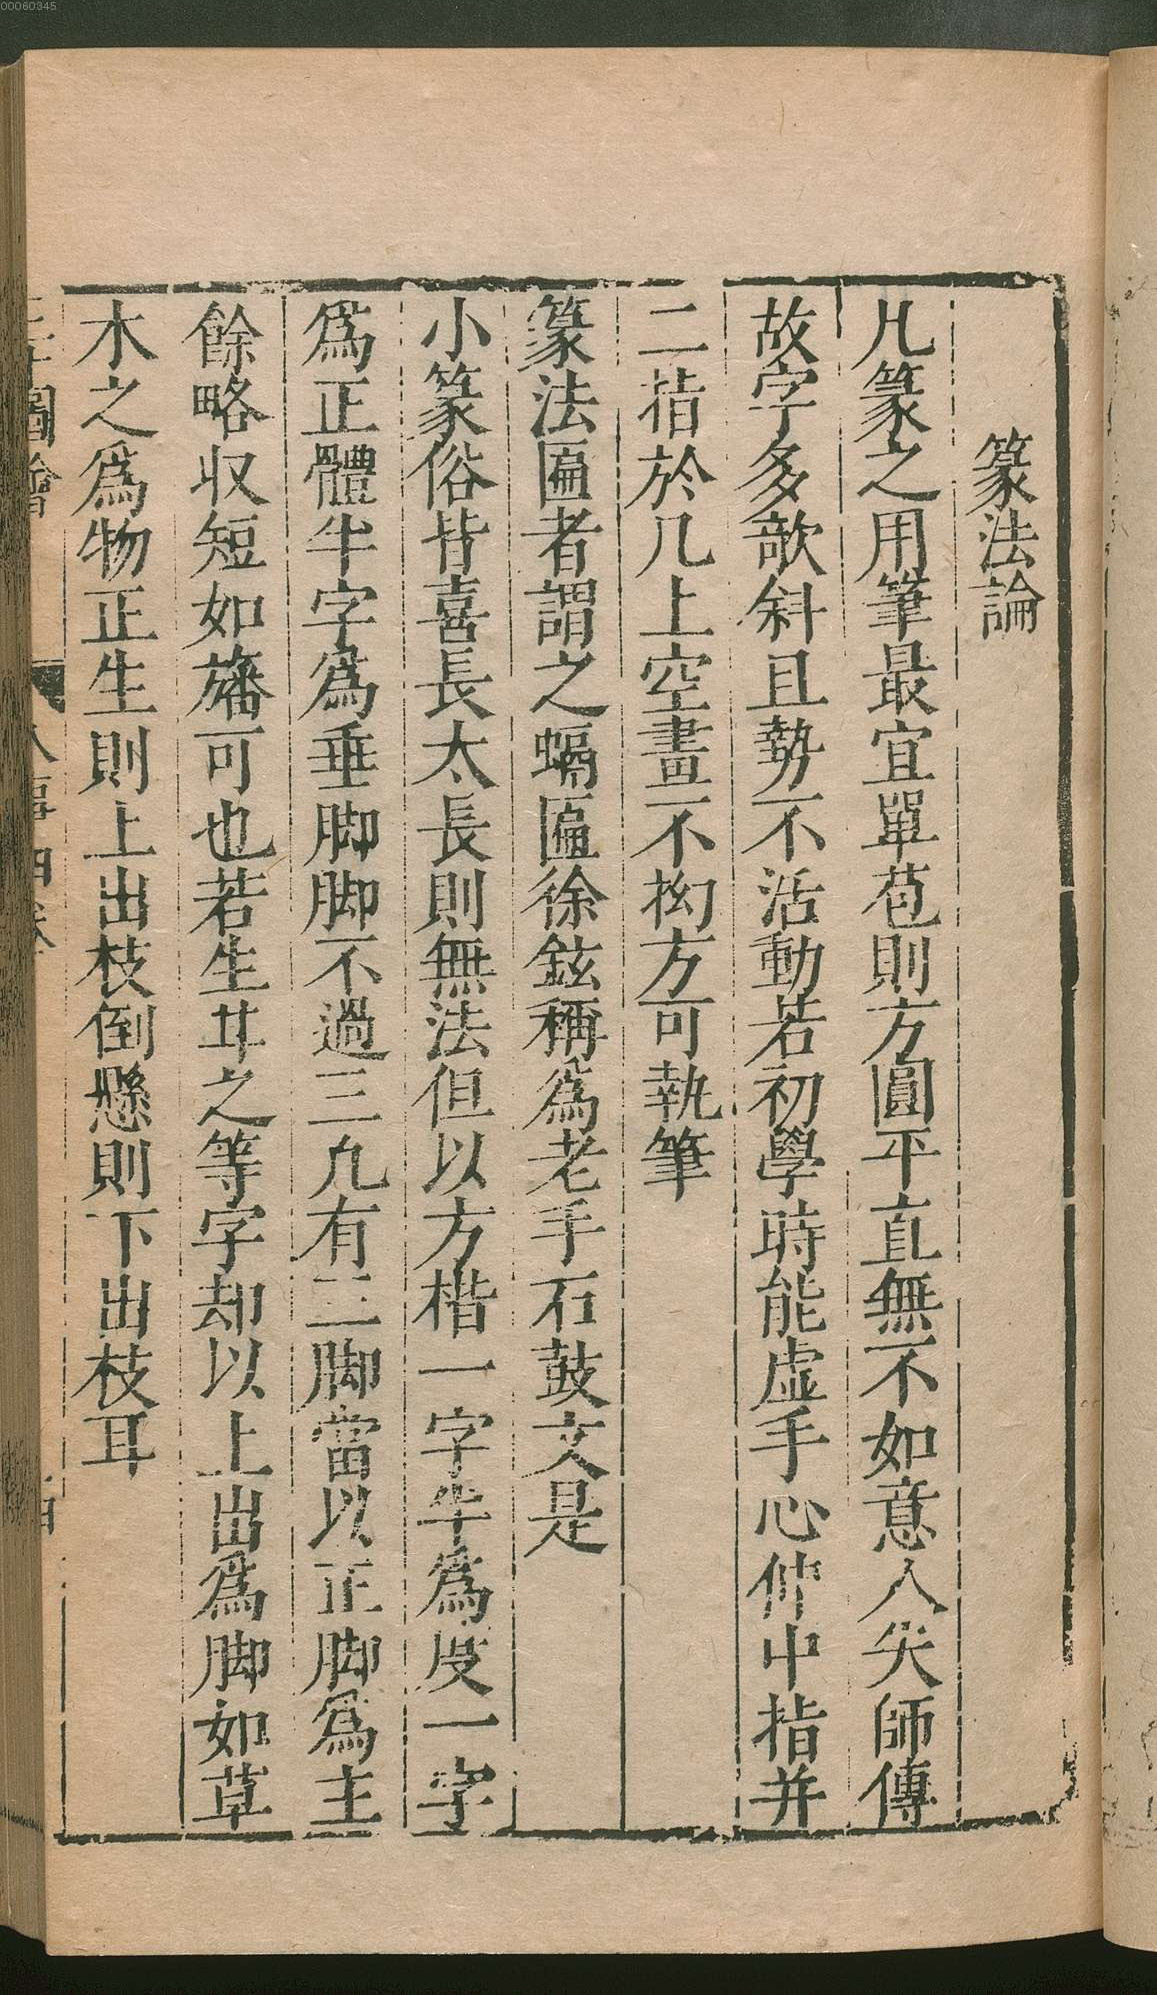 篆法論
凡篆之用筆最宜單苞則方圓平直無不如意人失師傳
故字多欹斜且勢不活動若初學時能虛手心伸中指并
二指於几上空畫不拗方可執筆
篆法匾者謂之螎匾徐鉉稱爲老手石鼓文是
小篆俗皆喜長太長則無法但以方楷一字半爲度一字
爲正體半字爲垂脚脚不過三凢有三脚當以正脚爲主
餘略收短如旛可也若生㐄之等字却以上出爲脚如草
木之爲物正生則上出枝倒懸則下出枝耳
三才圖會
人事四卷
00060345